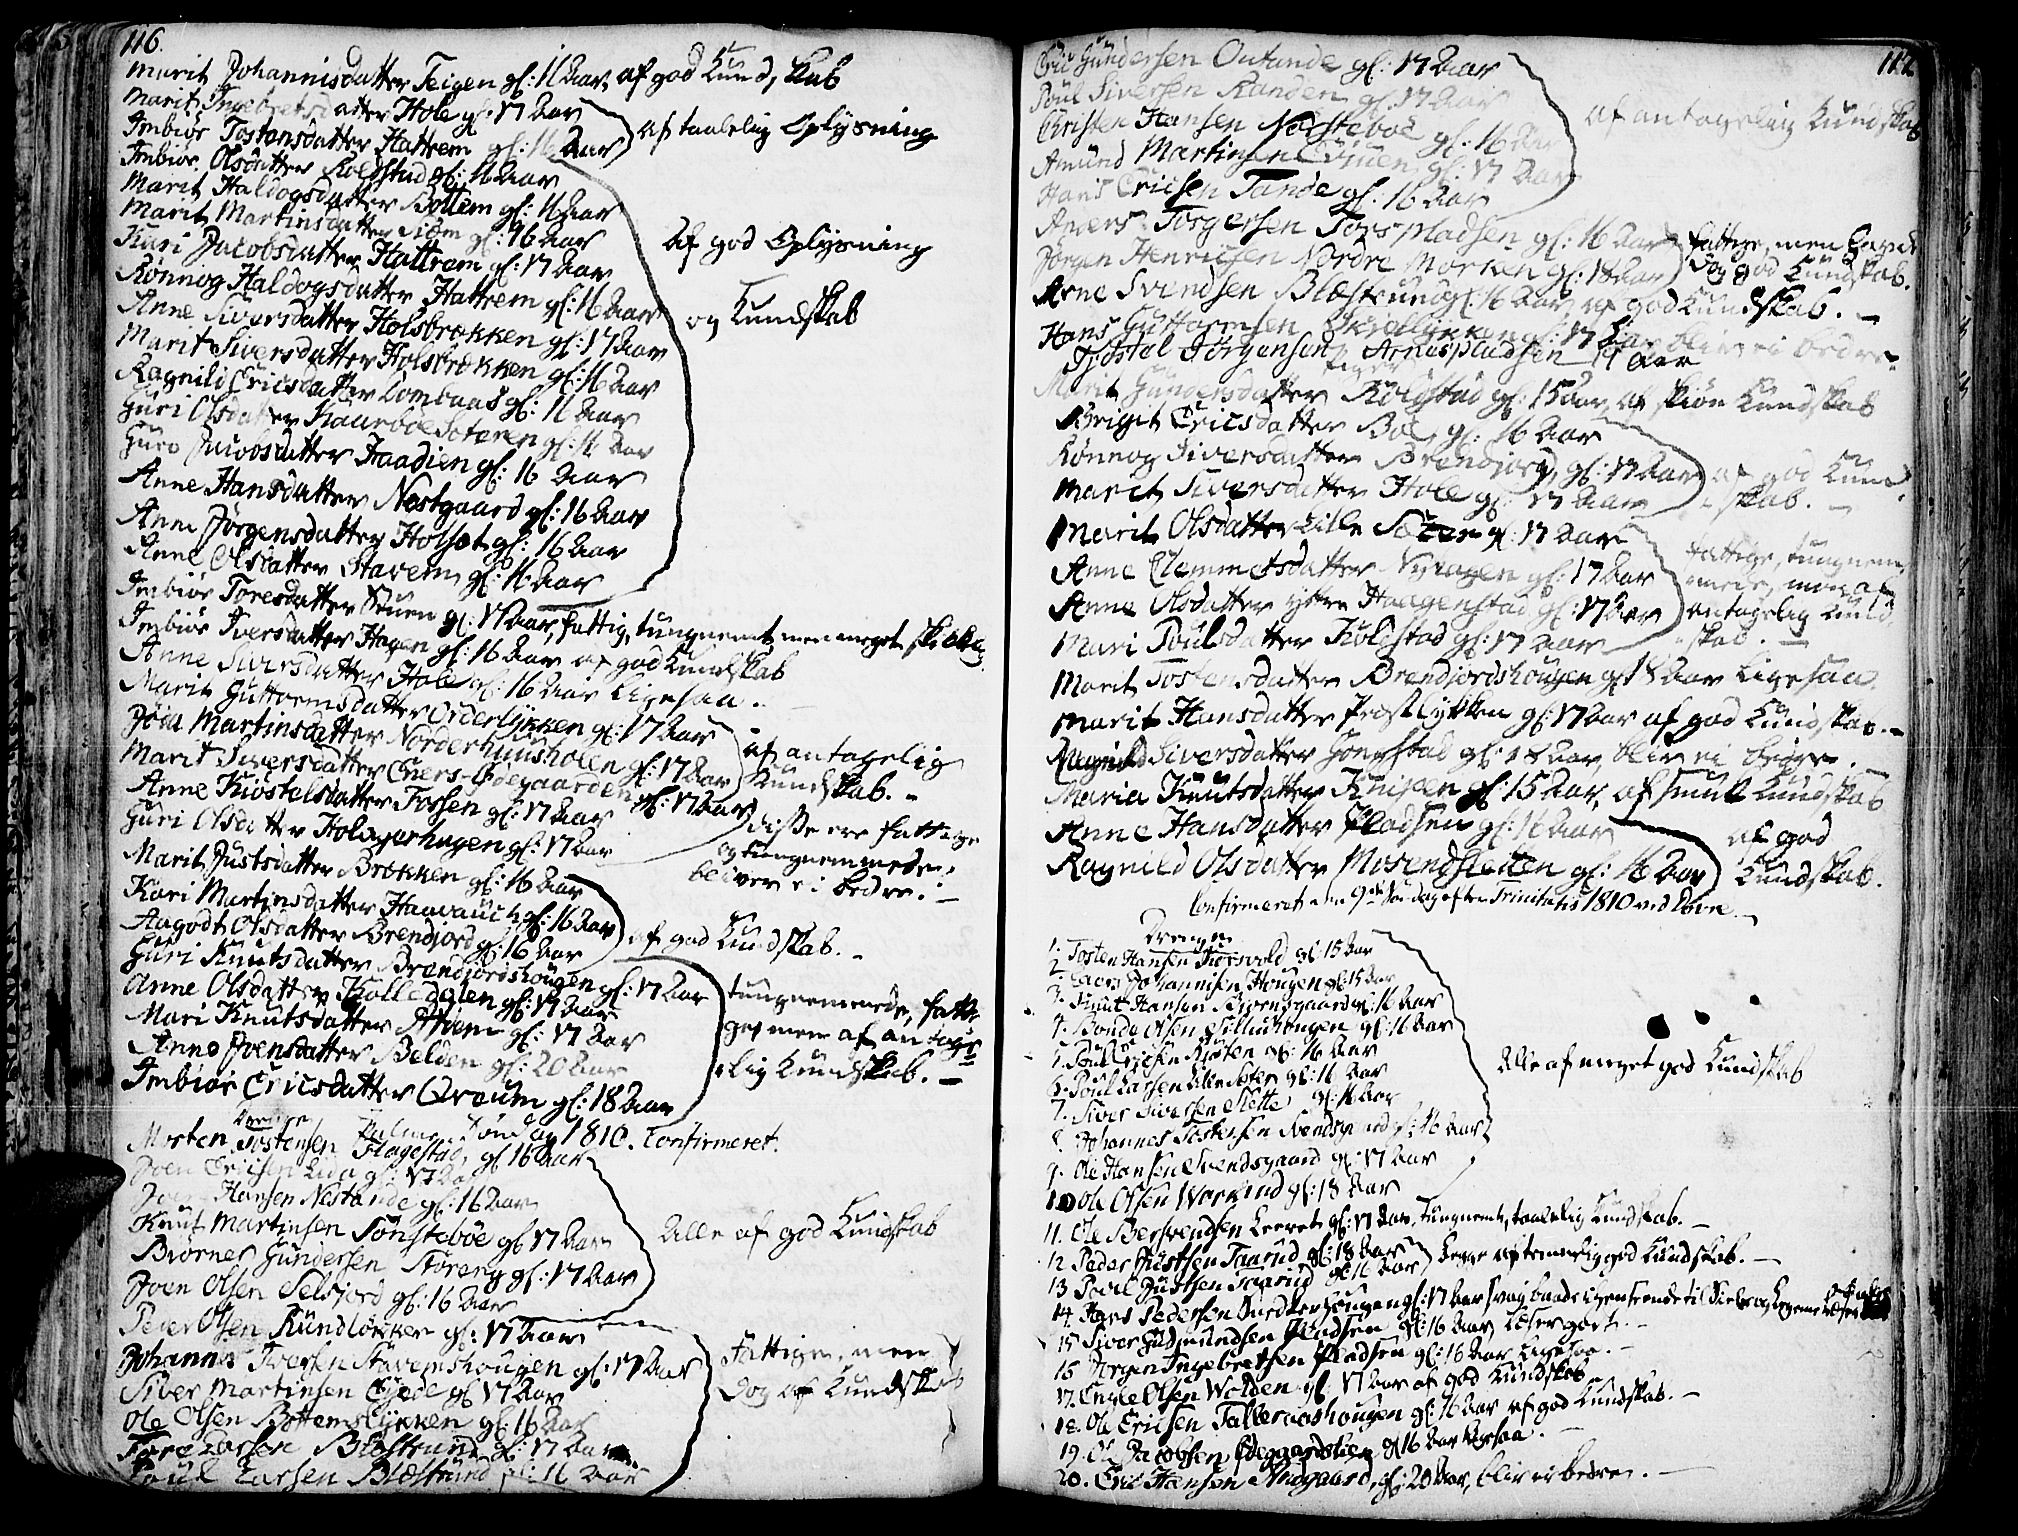 116.
Marit Johannisdatter Teigen gl: 16 Aar, af god Kund,skab
Marit Ingebretsdatter Hole gl: 17 Aar
Imbiør Tostensdatter Hattrem gl: 16 Aar
af taalelig Oplysning
Imbiør Olsdatter Kolstad gl: 16 Aar
Marit Haldogsdatter Bottem gl: 16 Aar
Marit Martinsdatter gl: 16 Aar
Kari Jacobsdatter Hattrem gl: 17 Aar
Rønnog Haldogsdatter Hattrem gl: 16 Aar
Anne Siversdatter Holsbrekken gl: 17 Aar
Marit Siversdatter Holsbrekken gl: 16 Aar
Ragnild Ericsdatter Lombaas gl: 16 Aar
Guri Olsdatter Haarbøe Seteren gl: 16 Aar
Guro Jacobsdatter Haadien gl: 16 Aar
Anne Hansdatter Nestgaard gl: 16 Aar
Anne Jørgensdatter Holset gl: 16 Aar
Anne Olsdatter Stavem gl: 16 Aar
af god Oplysning
og Kundskab
Imbiør Toresdatter Stuen gl: 17 Aar, fattig, tungnemt, men meget skikkelig
Imbiør Iversdatter Hagen gl: 16 Aar af god Kundskab
Anne Siversdatter Hole gl: 16 Aar Ligesaa.
Marit Guttormsdatter Orderlykken gl: 17 Aar
Martinsdatter Norderhuusholen gl: 17 Aar
Marit Siversdatter Eners-Ødegaarden gl: 17 Aar
af antagelig
Kundskab.
Anne Kiøstelsdatter Fossen gl: 17 Aar
Guri Olsdatter Holagerhagen gl: 17 Aar
disse ere fattige
og tungnemmede,
bliver ei bedre.
Marit Justsdatter Brekken gl: 16 Aar
Kari Martinsdatter gl: 16 Aar
Aagodt Olsdatter Brendjord gl: 16 Aar
af god Kundskab.
Guri Knutsdatter Brendjordshougen gl: 17 Aar
Anne Olsdatter Kolledalen gl: 17 Aar
Mari Knutsdatter gl: 17 Aar
Anne Joensdatter Belden gl: 20 Aar
Imbiør Ericsdatter Qvaum gl: 18 Aar
tungnemmede, fatti-
ge, men af antage-
lig Kundskab.
Drenge Palme-Søndag 1810. Confirmeret.
Morten Tostensen Flagestad, gl 16 Aar
Joen Ericsen Lida gl: 17 Aar
Joen Hansen Nestande gl: 16 Aar
Knut Martinsen Tonstebøe gl: 17 Aar
Biørner Gundersen Støreng gl: 17 Aar
Joen Olsen Selsjord gl: 16 Aar
Alle af god Kundskab
Peder Olsen Rundløkken gl: 17 Aar
Johannes Iversen Stavemshougen gl: 17 Aar
Siver Martinsen gl 17 Aar
Ole Olsen Bottemslykken gl: 16 Aar
Tore Larsen Blæstrund gl: 17 Aar
Poul Larsen Blæstrund gl: 16 Aar
Fattige, men
dog af Kundskab
117
Gundersen Outande gl: 17 Aar
Poul Siversen Randen gl: 17 Aar
Christen Hansen Norstebøe gl: 16 Aar
Amund Martinsen gl: 17 Aar
Hans Ericsen Tande gl: 16 Aar
af antagelig Kundskab
Anders Torgersen pladsen gl: 16 Aar
Jørgen Henricsen Nordre Morken gl: 18 Aar
fattige, men
dog god Kundskab.
Arne Svendsen Blæstrun gl: 16 Aar, af god Kundskab.
Hans Guttormsen gl: 17 Aar bliver ei bedre
Kjøstel Jørgensen Arnespladsen 19 Aar
Piger
Marit Gundersdatter Kolstad gl: 15 Aar, af skiøn Kundskab
Brigit Ericsdatter Bøe, gl: 16 Aar
Rønnog Siversdatter Brendjord, gl: 17 Aar
Marit Siversdatter Hole gl: 17 Aar
af god Kund-
skab.
Marit Olsdatter Lille Seter gl: 17 Aar
Anne Clemmetsdatter gl: 17 Aar
Anne Olsdatter Haagenstad gl: 17 Aar
Mari Poulsdatter Kolstad gl: 17 Aar
fattige, tungnem-
mede, men af
antagelig Kund-
skab.
Marit Tostensdatter Brendjordshougen gl 18 Aar Ligesaa
Marit Hansdatter Prestlykken gl: 17 Aar af god Kundskab.
Ragnild Siversdatter gl: 18 Aar, bliver ei bedre.
Maria Knutsdatter gl: 15 Aar, af smuk Kundskab
Anne Hansdatter Pladsen gl: 16 Aar
Ragnild Olsdatter Mosendsletten gl: 16 Aar
af god
Kundskab.
Confirmeret den 9de Søndag efter Trinitatis 1810 ved Dovre.
Drenge
1. Tosten Hansen gl 15 Aar
2. Johannisen Hougen gl: 15 Aar
3. Knut Hansen gl: 16 Aar
4. Bonde Olsen gl: 16 Aar
5. Poul Ericsen gl: 16 Aar
6. Poul Larsen Lille Seter gl: 16 Aar
7. Siver Siversen Slette gl: 16 Aar
8. Johannes Tostensen Svendsgaard gl: 16 Aar
9. Ole Hansen Svendsgaard gl: 17 Aar
10 Ole Olsen gl: 18 Aar
Alle af meget god Kundskab
11. Ole Bersvendsen gl: 17 Aar, tungnemt, taalelig Kundskab.
12 Peder Justsen Taarud gl: 18 Aar
13 Poul Justsen Taarud gl 16 Aar
begge af temmelig god Kundskab.
14. Hans Pedersen gl: 17 Aar svag baade igenseende til Siel og Legeme
15 Siver Gudmundsen Pladsen gl: 16 Aar, Læser godt.
16 Jørgen Ingebretsen Pladsen gl: 16 Aar Ligesaa.
17. Engle Olsen Wolden gl: 17 Aar af god Kundskab
18. Ole Ericsen Tallerashougen gl: 16 Aar af god Kundskab.
19. Ole Jacobsen gl 16 Aar Ligesaa.
20. Eric Hansen gl: 20 Aar, bliver ei bedre.